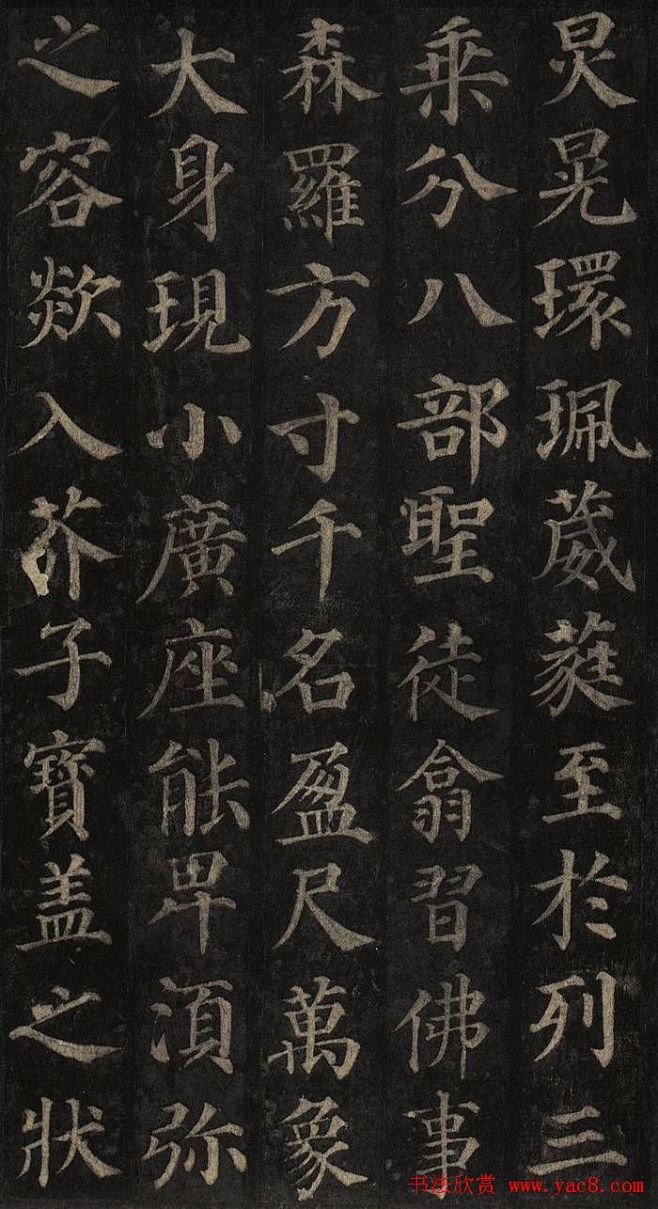 炅晃環珮葳蕤至於列三
乘分八部聖徒翕習佛事
森羅方寸千名盈尺萬象
大身現小廣座能卑湏弥
之容欻入芥子寳盖之狀
书法欣赏 www.yac8.com